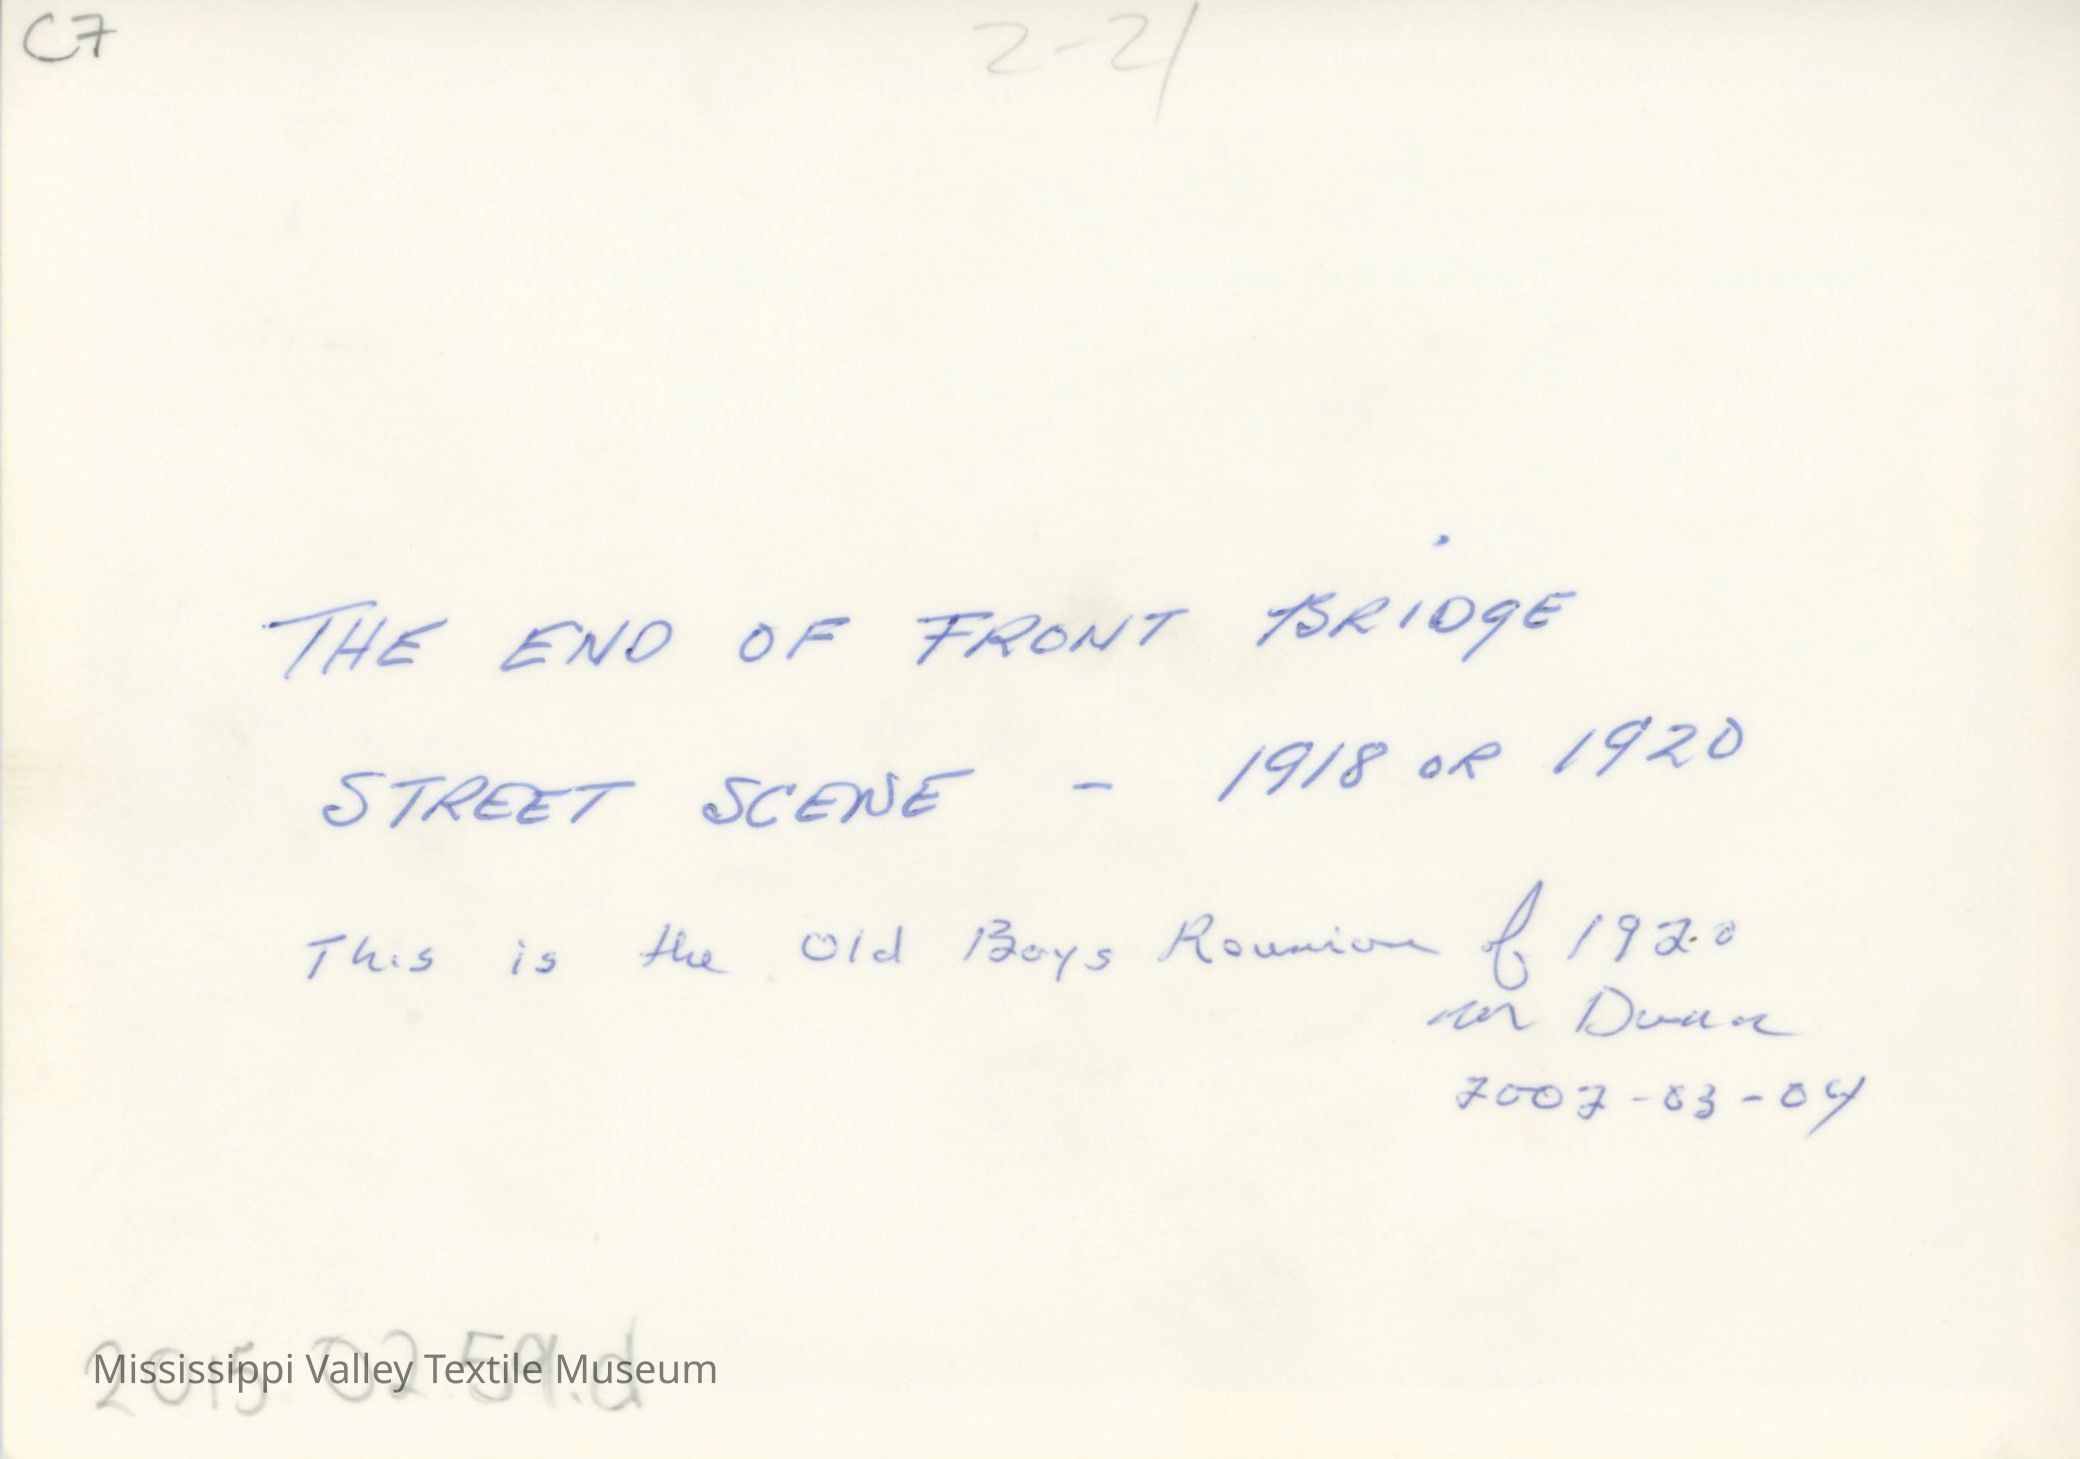 C7
2-21
THE END OF FRONT BRIDGE
STREET SCENE - 1918 OR 1920
This is the Old Boys Reunion of 1920
Dunn
2007-03-04
2015.02.59.d
Mississippi Valley Textile Museum